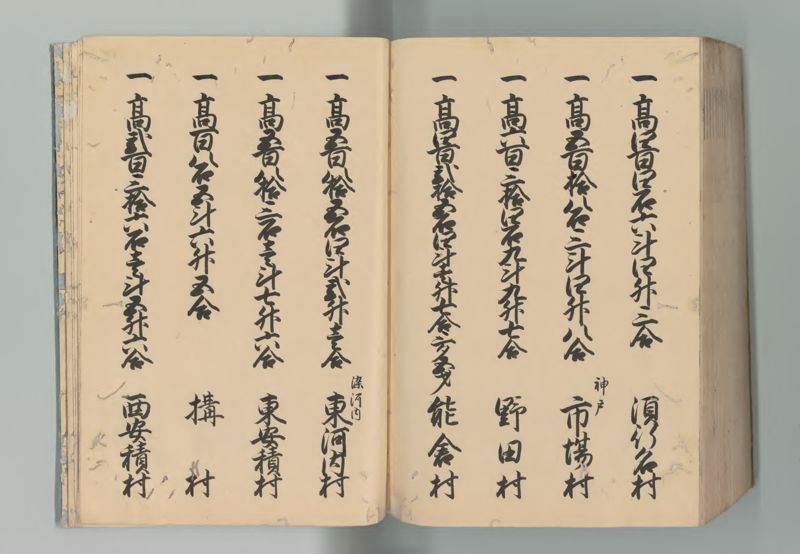 一 高四百四石六斗四升二合 須行名村
一 高五百拾八石二斗四升八合 神戸 市場村
一 高六百二拾四石九斗九升七合 野田村
一 高四百弐拾五石四斗七升七合 能倉村
一 高五百拾五石四斗弐升壱合 染河内 東河内村
一 高五百拾二石壱斗七升六合 東安積村
一 高百八石五斗六升五合 構村
一 高弐百二拾六石壱斗五升六合 西安積村